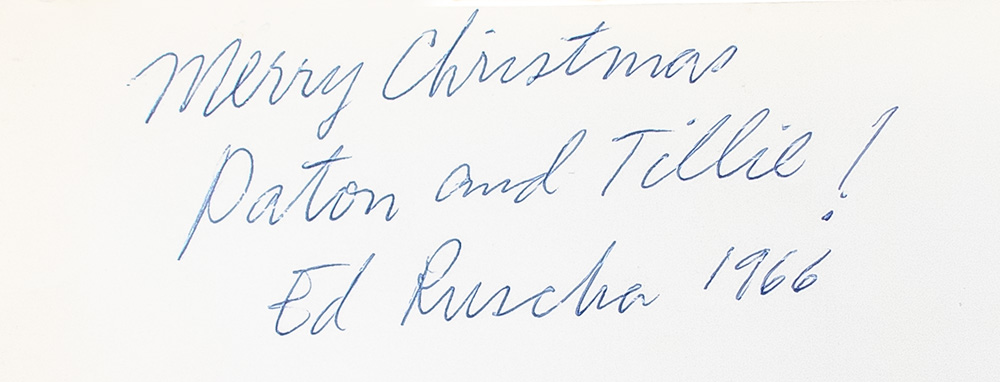 Merry Christmas
Paton and Tillie!
Ed Ruscha 1966